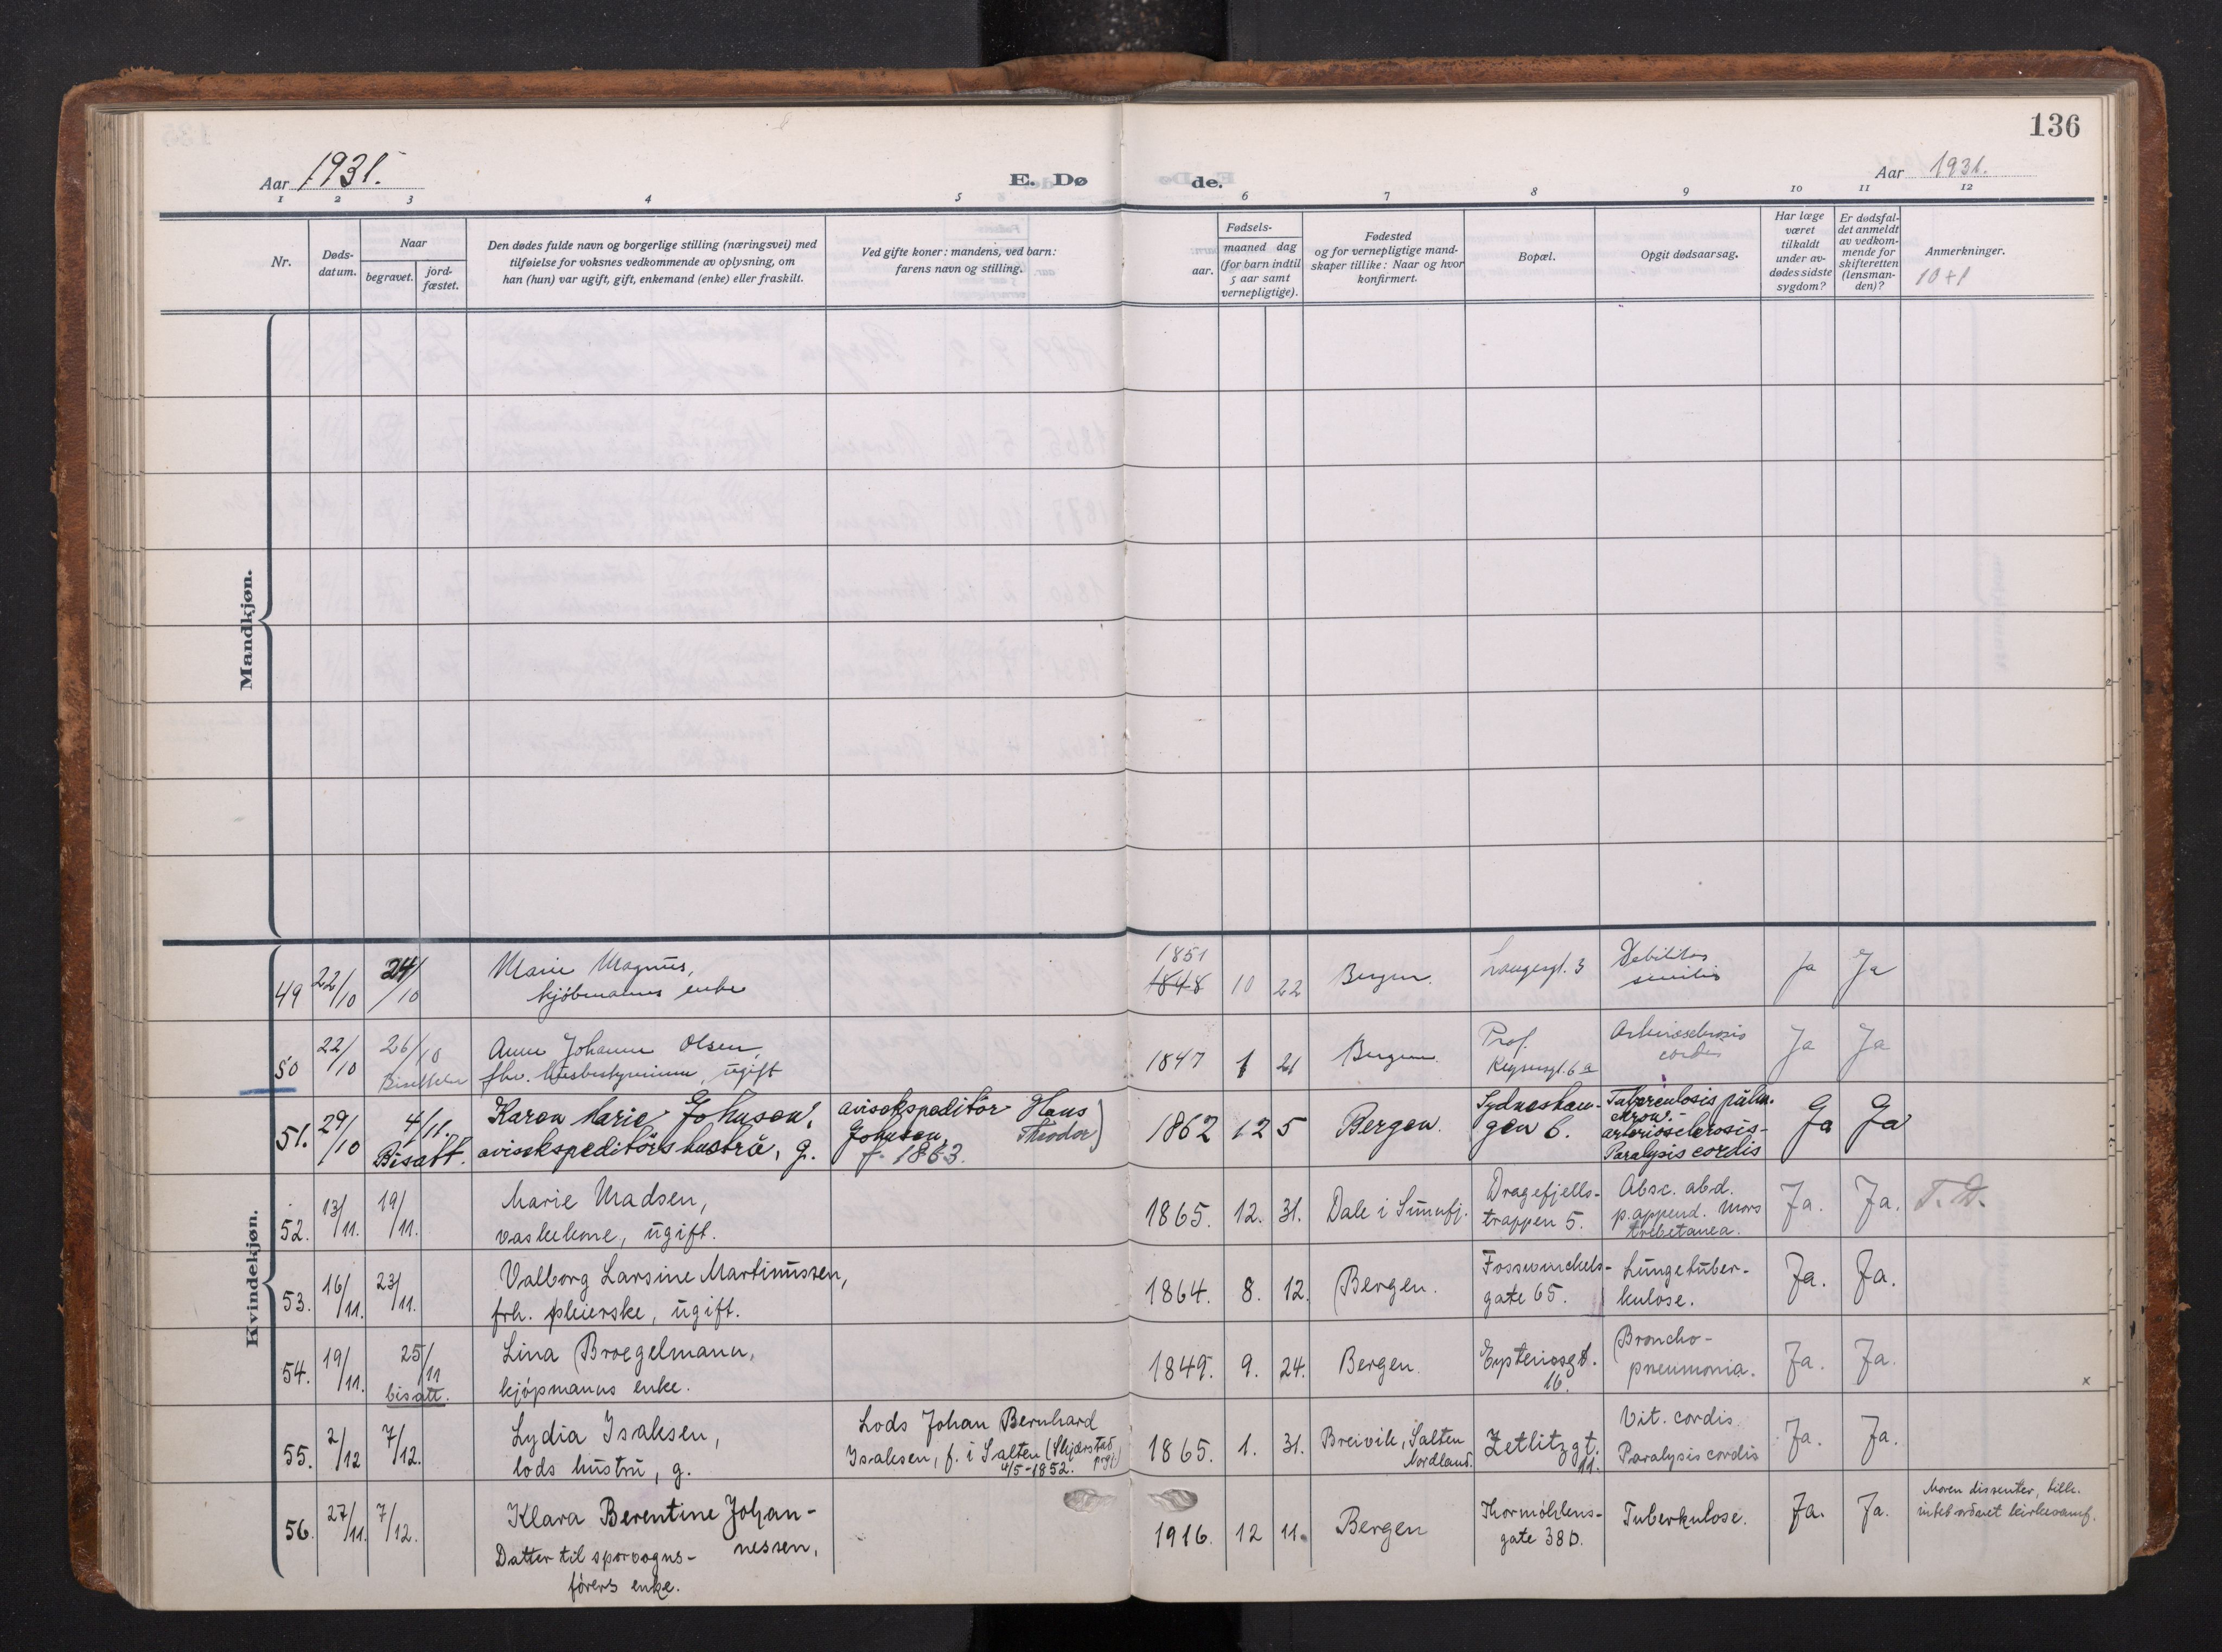 136
Aar 1931.
E. Dø de.
Aar 1931.
1 2 3 4 5 6 7 8 9 10 11 12
Nr.
Døds-
datum.
Naar
begravet.
jord-
fæstet.
Den dødes fulde navn og borgerlige stilling (næringsvei) med
tilføielse for voksnes vedkommende av oplysning, om
han (hun) var ugift, gift, enkemand (enke) eller fraskilt.
Ved gifte koner: mandens, ved barn:
farens navn og stilling.
Fødsels-
aar.
maaned dag
(for barn indtil
5 aar samt
vernepligtige).
Fødested
og for vernepligtige mand-
skaper tillike: Naar og hvor
konfirmert.
Bopæl.
Opgit dødsaarsag.
Har læge
været
tilkaldt
under av-
dødes sidste
sygdom?
Er dødsfal-
det anmeldt
av vedkom-
mende for
skifteretten
(lensman-
den)?
Anmerkninger.
10+1
Mandkjøn.
Kvindekjøn.
49 22/10 24/10
Marie Magnus,
kjøbmanns enke
1851
1848 10 22
Bergen.
Langesgt. 3
Debilitas
senilis
Ja Ja
50 22/10 26/10
Anne Johanne Olsen,
fhv. husbestyrerinne, ugift
1847 1 21
Bergen.
Prof.
Keysersgt. 6a
Arteriosclerosis
cordis
Ja Ja
51. 29/10 4/11.
Bisatt.
Karen Marie Johnsen,
avisekspeditørs hustru, g.
avisekspeditør Hans
Johnsen, Theodor)
f. 1863.
1862 12 5
Bergen.
Sydneshau-
gen 6.
Tuberculosis pulm.
chron. -
arteriosclerosis -
Paralysis cordis
Ja Ja
52. 13/11. 19/11.
Marie Madsen,
vaskekone, ugift.
1865. 12. 31.
Dale i Sunnfj.
Dragefjells-
trappen 5.
Absc. abd.
p. append. mors
Ja. Ja. T. D.
53. 16/11. 23/11.
Valborg Larsine Martinussen,
frh. pleierske, ugift.
1864. 8. 12.
Bergen.
Fosswinckels-
gate 65.
Lungetuber-
kulose.
Ja. Ja.
54. 19/11. 25/11
bisatt.
Lina Broegelmann,
kjøpmanns enke.
1849. 9. 24.
Bergen.
Eysteinsgt.
16.
Broncho-
pneumonia.
Ja. Ja.
x
55. 2/12 7/12.
Lydia Isaksen,
lods hustru, g.
Lods Johan Bernhard
Isaksen, f. i Salten (Skjerstad
4/5-1852. prgj.)
1865. 1. 31.
Breivik, Salten
Nordland.
Zetlitzgt.
11.
Vit. cordis
Paralysis cordis
Ja. Ja.
56. 27/11. 7/12.
Klara Berentine Johan-
nessen,
Datter til sporvogns-
førers enke.
1916. 12 11.
Bergen
Thormøhlens-
gate 38D.
Tuberkulose.
Ja. Ja.
Moren dissenter,
intet ordnet kirkesamf.